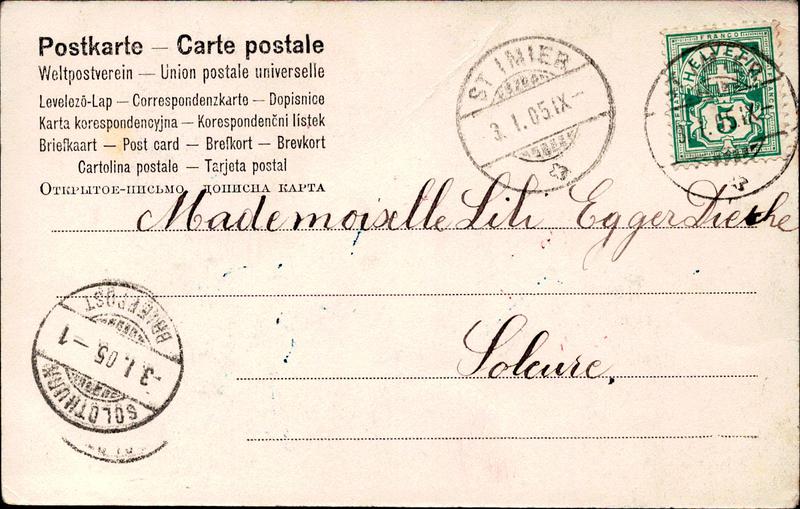 Postkarte — Carte postale
Weltpostverein — Union postale universelle
Levelező-Lap — Correspondenzkarte — Dopisnice
Karta korespondencyjna — Korespondenční lístek
Briefkaart — Post card — Brefkort — Brevkort
Cartolina postale — Tarjeta postal
Открытое-письмо дописна карта
ST. IMIER
3.1.05.IX—
FRANCO
HELVETIA
5
Mademoiselle Lili Egger
Soleure.
BRIEFPOST
-3.1.05.-1
SOLOTHURN